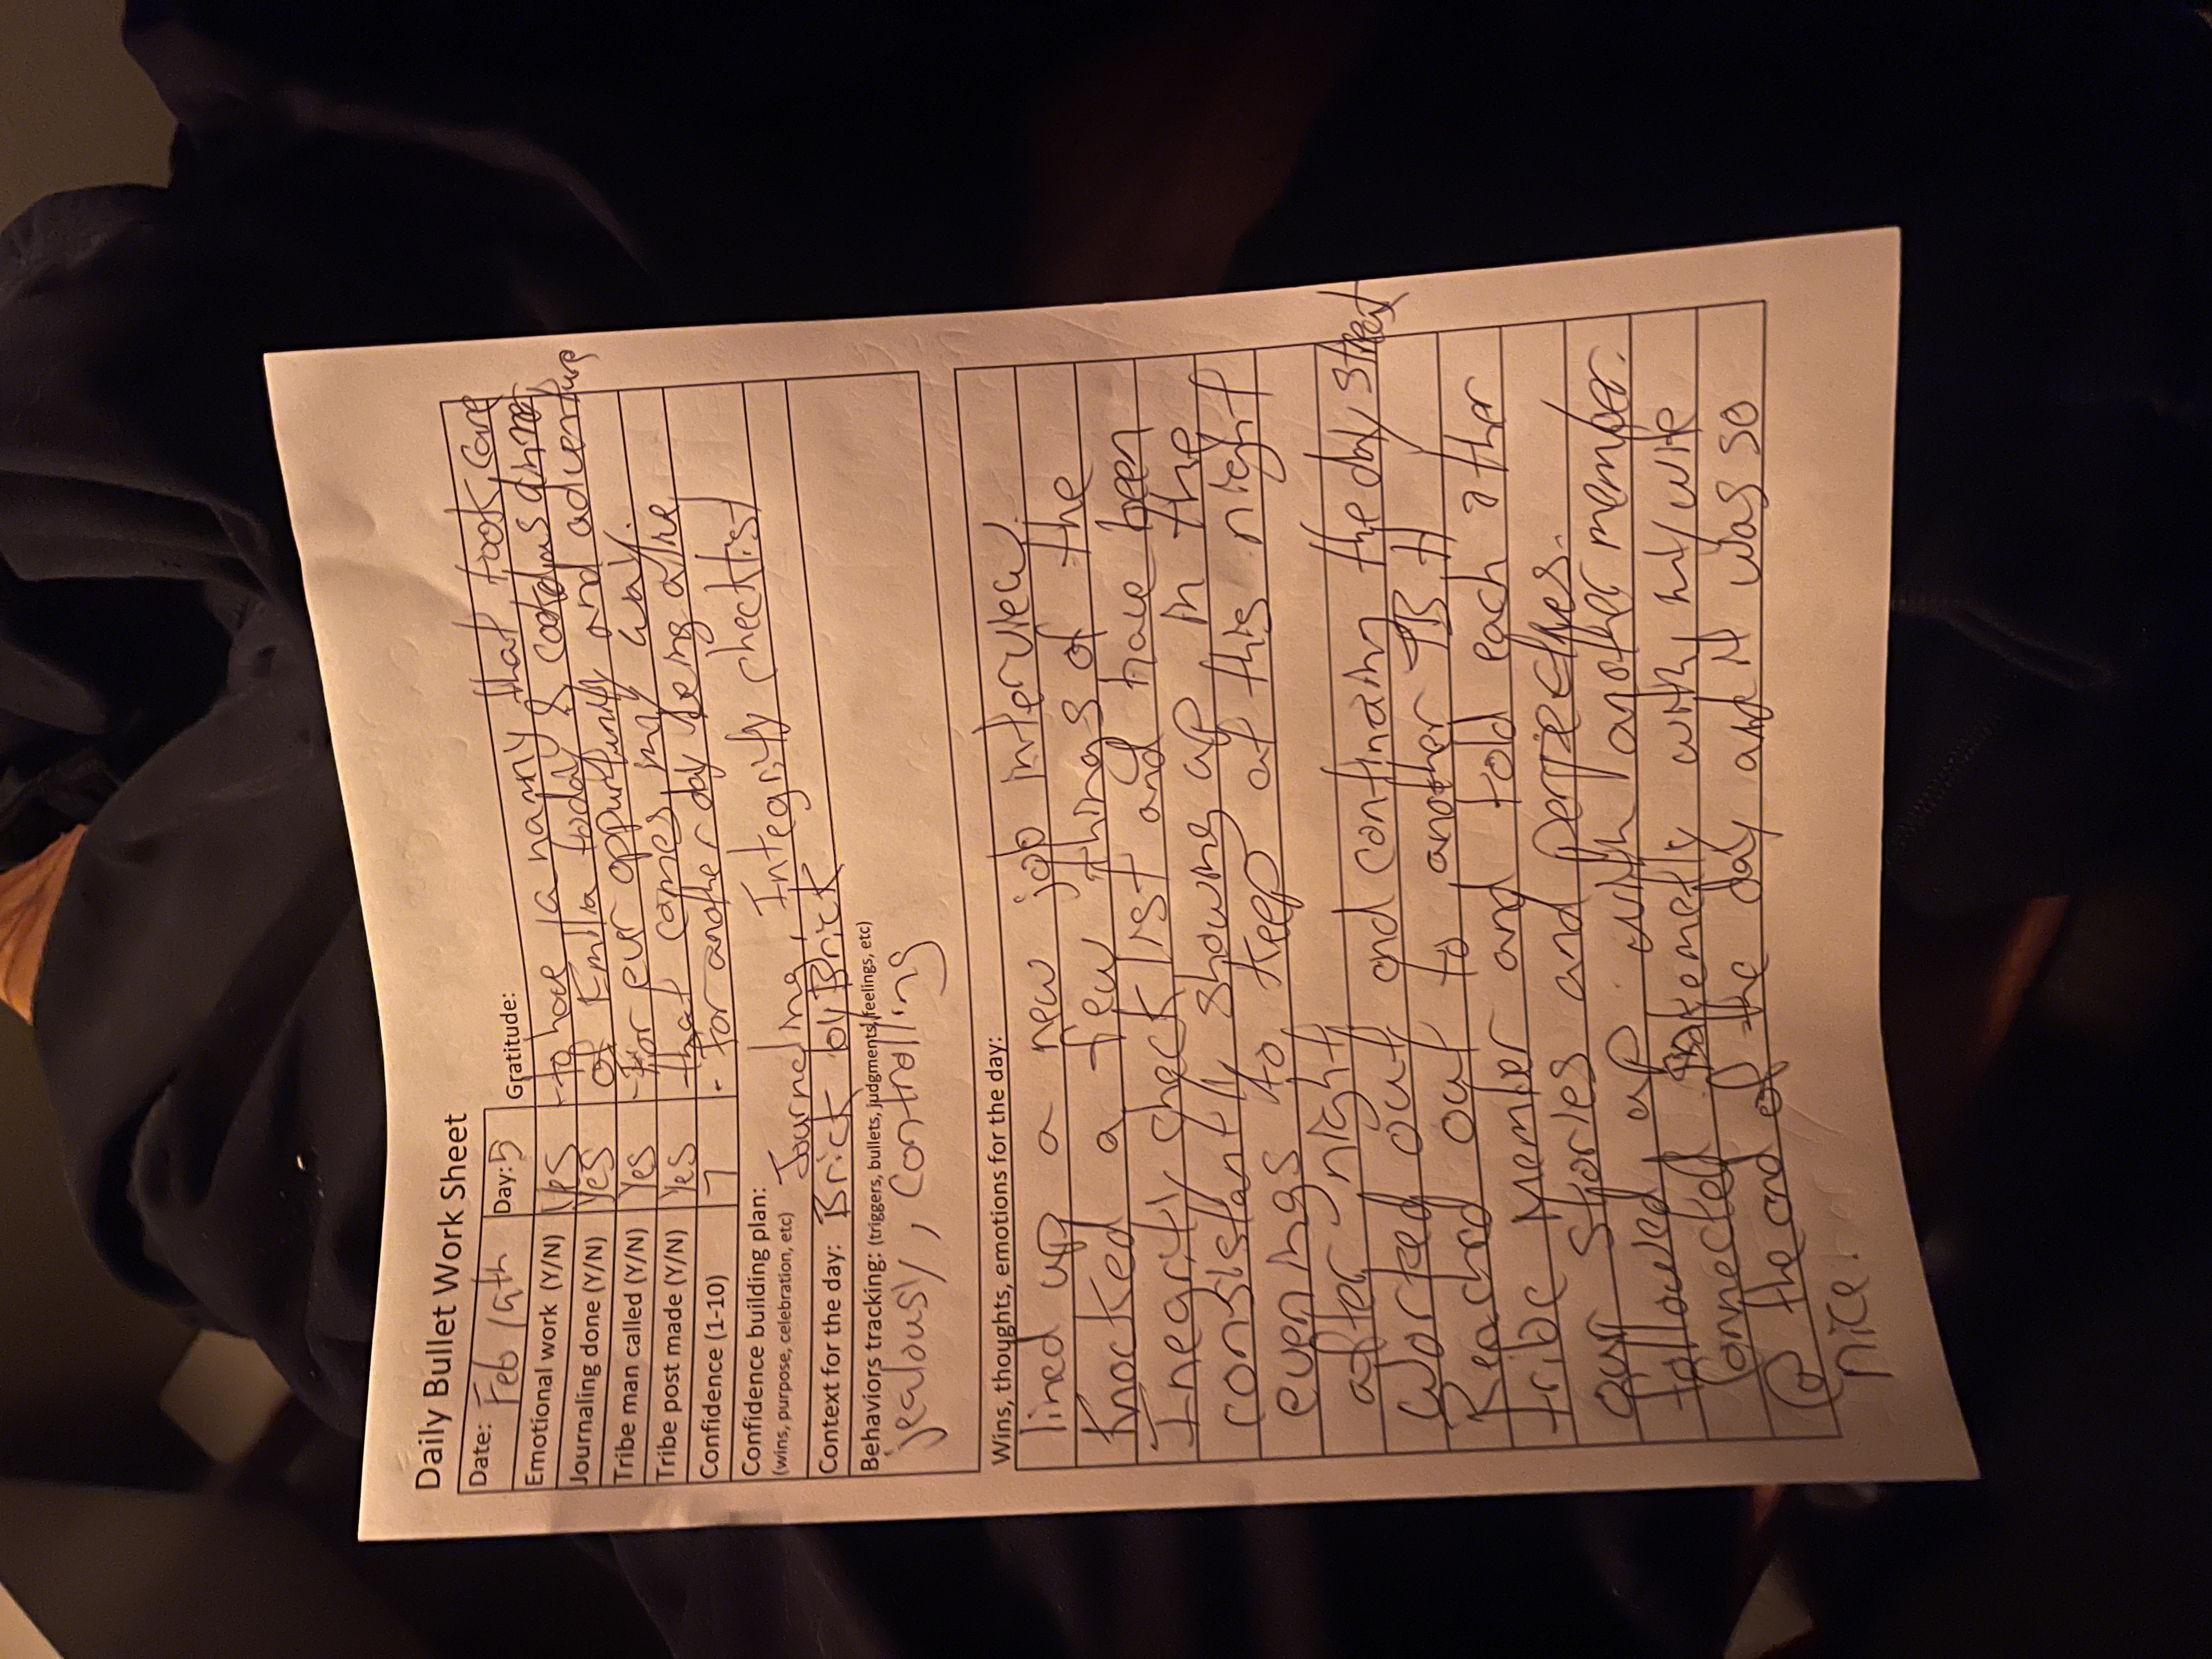 Daily Bullet Work Sheet
Date: Feb 19th Day: 5 Gratitude:
Emotional work (Y/N) Yes - to have a nanny that took care
Journaling done (Y/N) Yes of Emilia today & cooked us dinner
Tribe man called (Y/N) Yes - For evr oppurtunity and adventure
Tribe post made (Y/N) Yes that comes my way.
Confidence (1-10) 7 - for another day being alive
Confidence building plan: Journeling, Integrity checklist
(wins, purpose, celebration, etc)
Context for the day: Brick by Brick
Behaviors tracking: (triggers, bullets, judgments, feelings, etc)
jealousy, controlling
Wins, thoughts, emotions for the day:
lined up a new job interview
Knocked a few things of the
Inegrity check list and have been
consistantly showing up in the
evenings to keep at this night
after night
Worked out and continain the day, strest
Reached out to another TB II
tribe Member and told each other
our stories and perspectives.
followed up with another member.
Connected with my wife
@ the end of the day and it was so
nice.